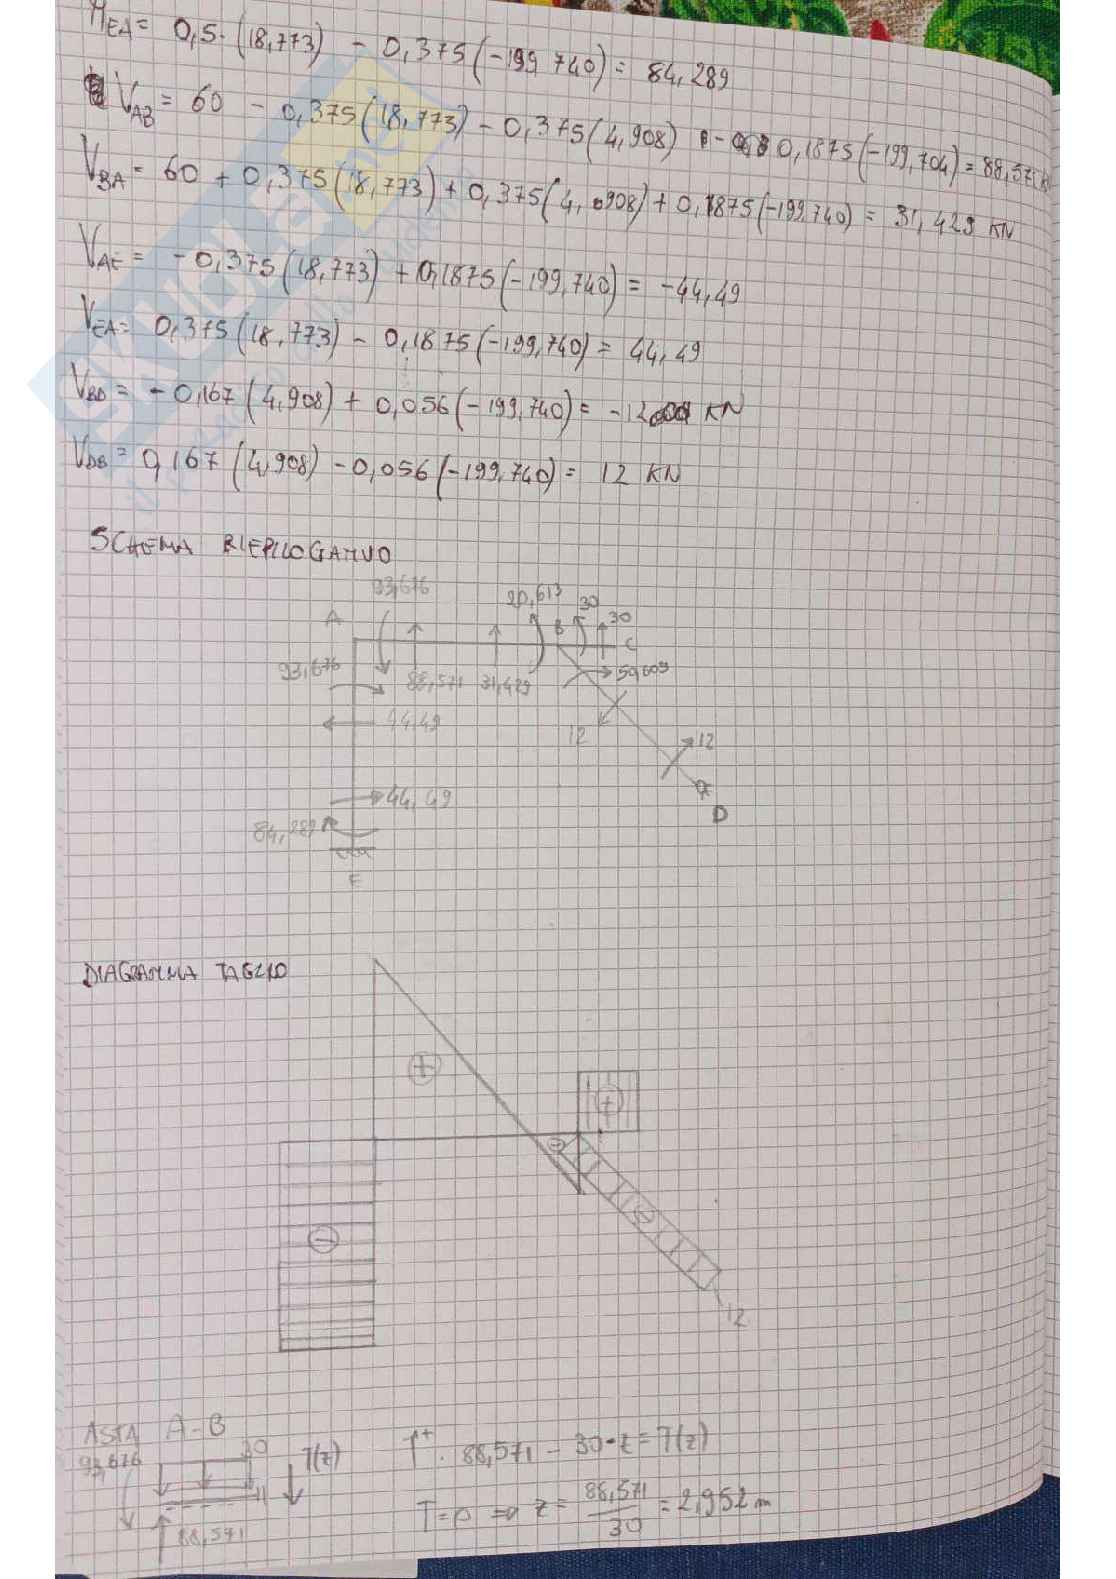 M_EA = 0,5 · (18,773) - 0,375 (-199,740) = 84,289
V_AB = 60 - 0,375 (18,773) - 0,375 (4,908) - 0,1875 (-199,704) = 88,571 K
V_BA = 60 + 0,375 (18,773) + 0,375 (4,908) + 0,1875 (-199,740) = 31,429 KN
V_AE = - 0,375 (18,773) + 0,1875 (-199,740) = -44,49
V_EA = 0,375 (18,773) - 0,1875 (-199,740) = 44,49
V_BD = - 0,167 (4,908) + 0,056 (-199,740) = -12 KN
V_DB = 0,167 (4,908) - 0,056 (-199,740) = 12 KN
SCHEMA RIEPILOGATIVO
93,676 20,613 30
A B 30
C
93,676 88,571 31,429 50,609
44,49 12
12
44,49
84,289 D
E
DIAGRAMMA TAGLIO
+
+
-
-
-
12
ASTA A-B
93,676 30 T(z)
88,571
↑+ : 88,571 - 30·z = T(z)
T=0 ⇒ z = 88,571 / 30 = 2,952 m
SKUOLA.net